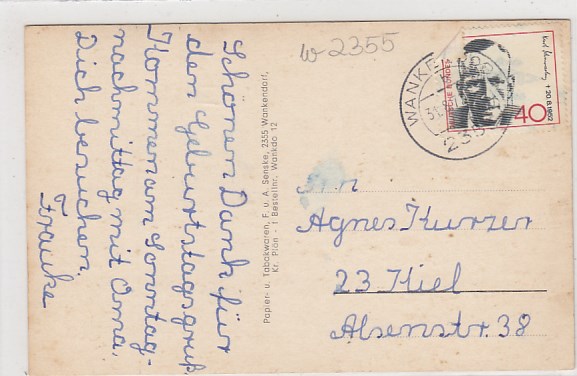 Schönen Dank für
den Geburtstagsgruß.
Kommen am Sonntag-
nachmittag mit Oma,
Dich besuchen.
Frauke
Papier- u. Tabakwaren, F. u. A. Senske, 2355 Wankendorf,
Kr. Plön - 1 Bestellnr. Wankdo 12
W 2355
WANKENDORF
2355
DEUTSCHE BUNDESPOST
+ 20.8.1952
40
An
Agnes Kurzer
23 Kiel
Alsenstr. 38